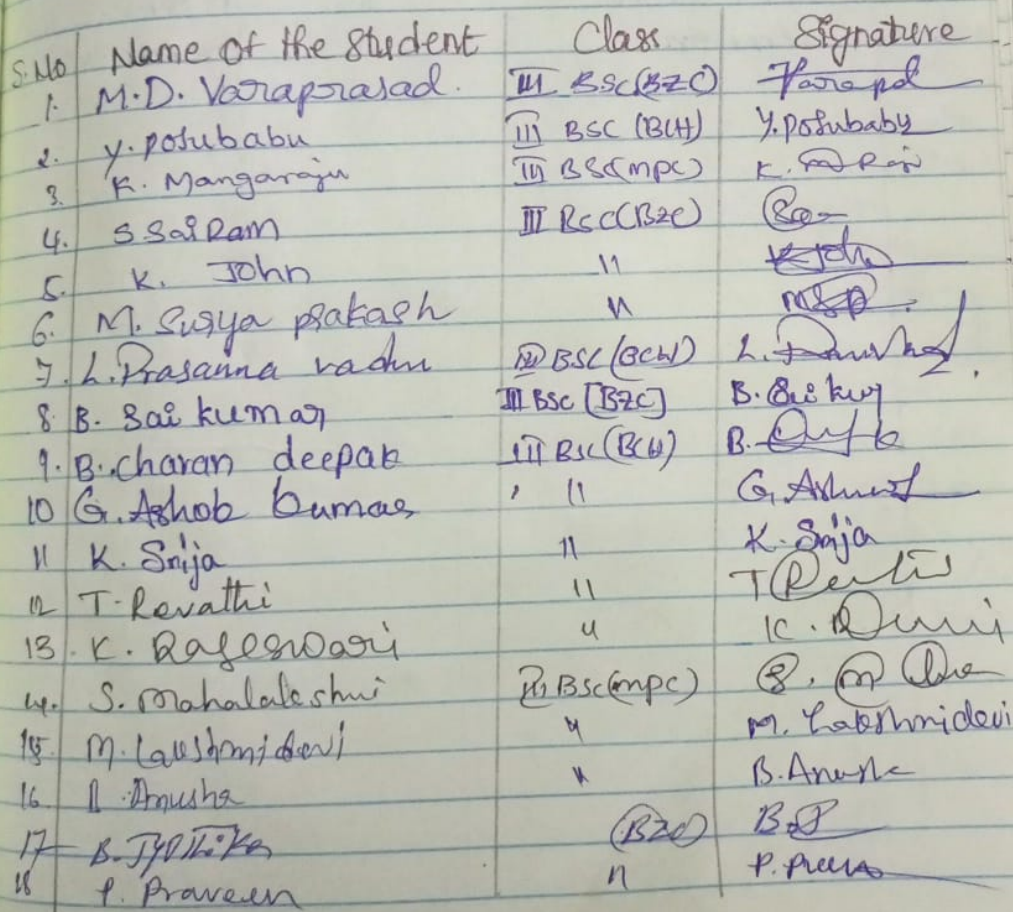 S.No Name of the Student Class Signature
1. M.D. Varaprasad. III BSC(BZC) Varapd
2. Y. posubabu III BSC (BCH) Y.posubaby
3. K. Mangaraju III BSC(mpc) K.
4. S Sai Ram III BSC(BZC)
5. K. John 11 K John
6. M. Surya prakash 11 MSP
7. L. Prasanna III BSC (BCH) L.
8. B. Sai kumar III BSC [BZC] B. Sai kuy
9. B. charan deepak III BSC (BCH) B.
10 G. Ashok kumar 11 G. Ashok
11 K. Srija 11 K. Srija
12 T. Revathi 11 T
13. K. Rajeswari 11 K.
14. S. mahalakshmi III BSC(mpc) S. m
15. M. Lakshmidevi 11 M. Lakshmidevi
16 Anusha 11 B. Anusha
17 B. Jyothika (BZC) B.
18 P. Praveen 11 P.